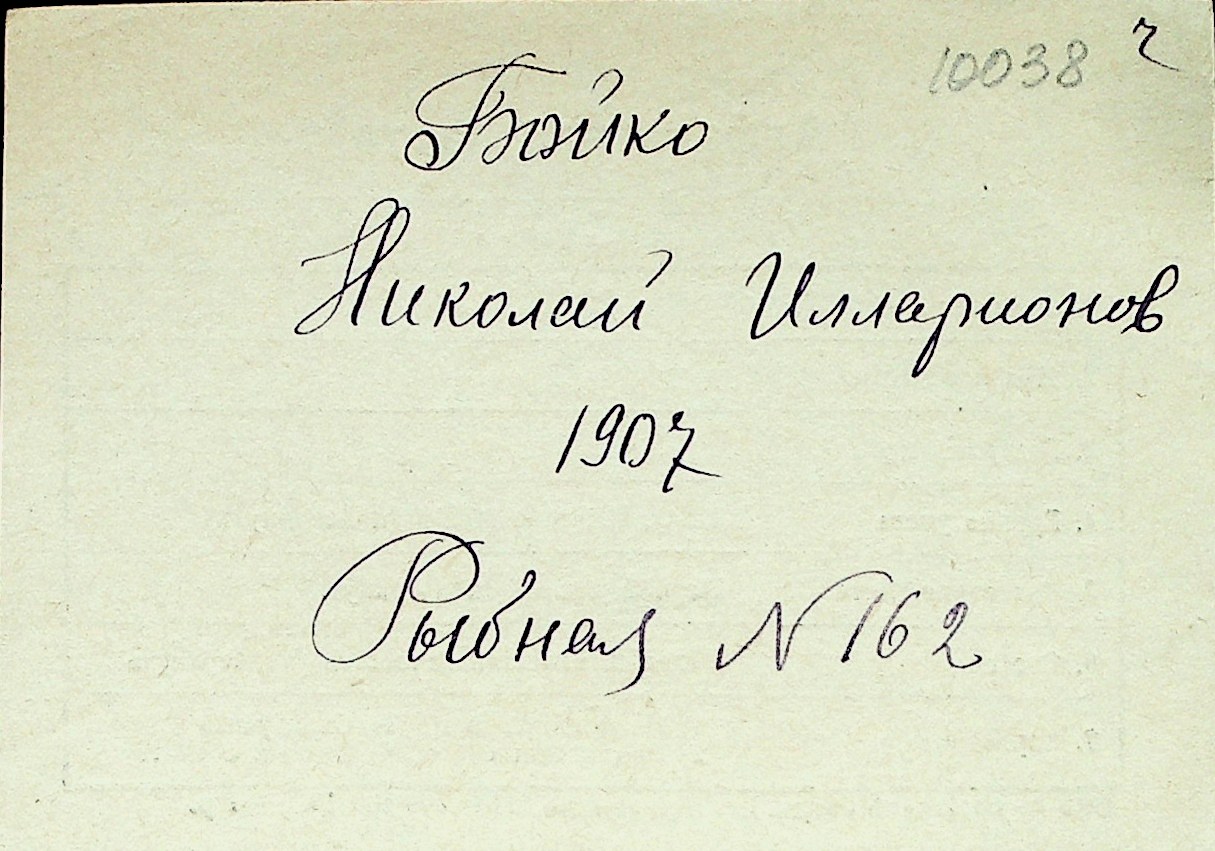 10038 ч
Бойко
Николай Илларионов
1907
Рыбная N 162